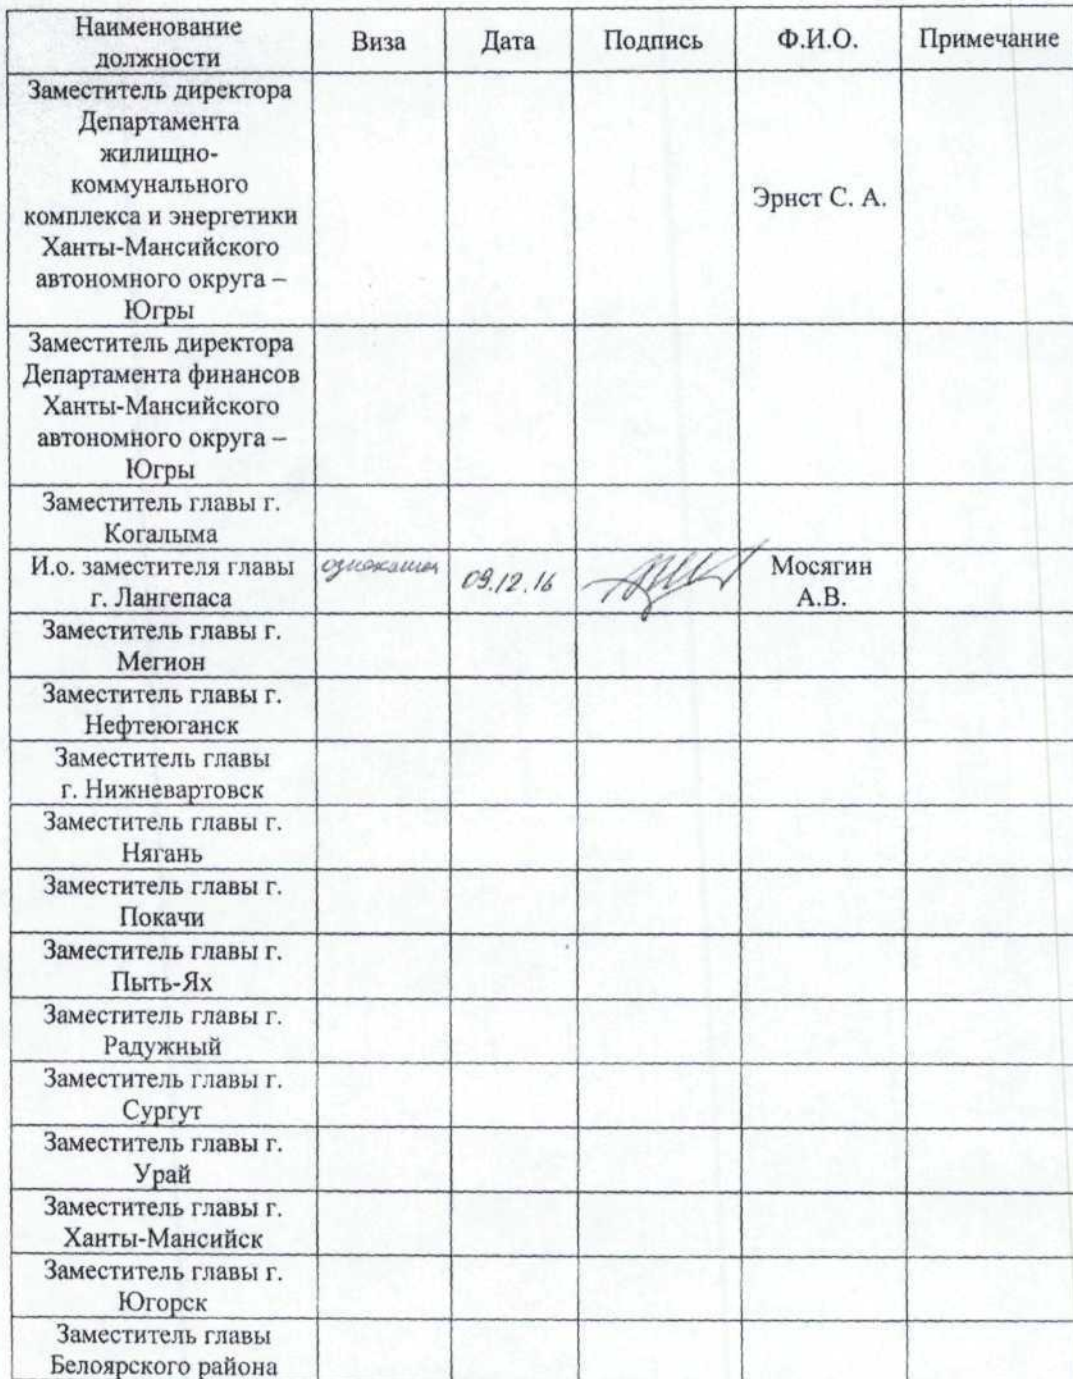 Наименование должности Виза Дата Подпись Ф.И.О. Примечание
Заместитель директора
Департамента
жилищно-
коммунального
комплекса и энергетики
Ханты-Мансийского
автономного округа –
Югры
Эрнст С. А.
Заместитель директора
Департамента финансов
Ханты-Мансийского
автономного округа –
Югры
Заместитель главы г.
Когалыма
И.о. заместителя главы
г. Лангепаса
09.12.16
Мосягин
А.В.
Заместитель главы г.
Мегион
Заместитель главы г.
Нефтеюганск
Заместитель главы
г. Нижневартовск
Заместитель главы г.
Нягань
Заместитель главы г.
Покачи
Заместитель главы г.
Пыть-Ях
Заместитель главы г.
Радужный
Заместитель главы г.
Сургут
Заместитель главы г.
Урай
Заместитель главы г.
Ханты-Мансийск
Заместитель главы г.
Югорск
Заместитель главы
Белоярского района